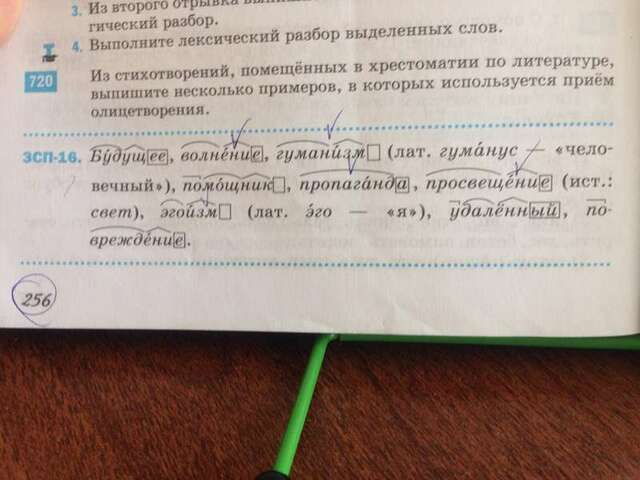 3. Из второго отрывка
гический разбор.
4. Выполните лексический разбор выделенных слов.
720 Из стихотворений, помещённых в хрестоматии по литературе,
выпишите несколько примеров, в которых используется приём
олицетворения.
ЗСП-16. Бу́дущее, волне́ние, гумани́зм (лат. гума́нус — «чело-
вечный»), помо́щник, пропага́нда, просвеще́ние (ист.:
свет), эгои́зм (лат. э́го — «я»), удалённый, по-
врежде́ние.
256